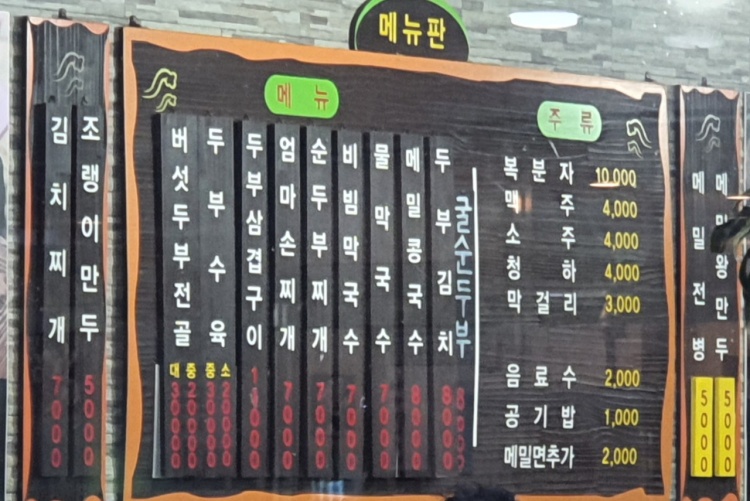 메뉴판
김치찌개 7000
조랭이만두 5000
메뉴
버섯두부전골 대 30000 중 20000
두부수육 중 30000 소 20000
두부삼겹구이
엄마손찌개 7000
순두부찌개 7000
비빔막국수 7000
물막국수 7000
메밀콩국수 8000
두부김치 8000
굴순두부
주류
복분자 10,000
맥주 4,000
소주 4,000
청하 4,000
막걸리 3,000
음료수 2,000
공기밥 1,000
메밀면추가 2,000
메밀전병 5000
메밀왕만두 5000